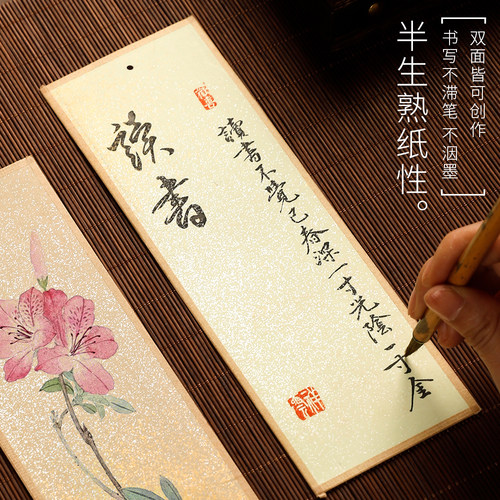 双面皆可创作
书写不滞笔 不洇墨
半生熟纸性。
读书
讀書不覺已春深一寸光陰一寸金